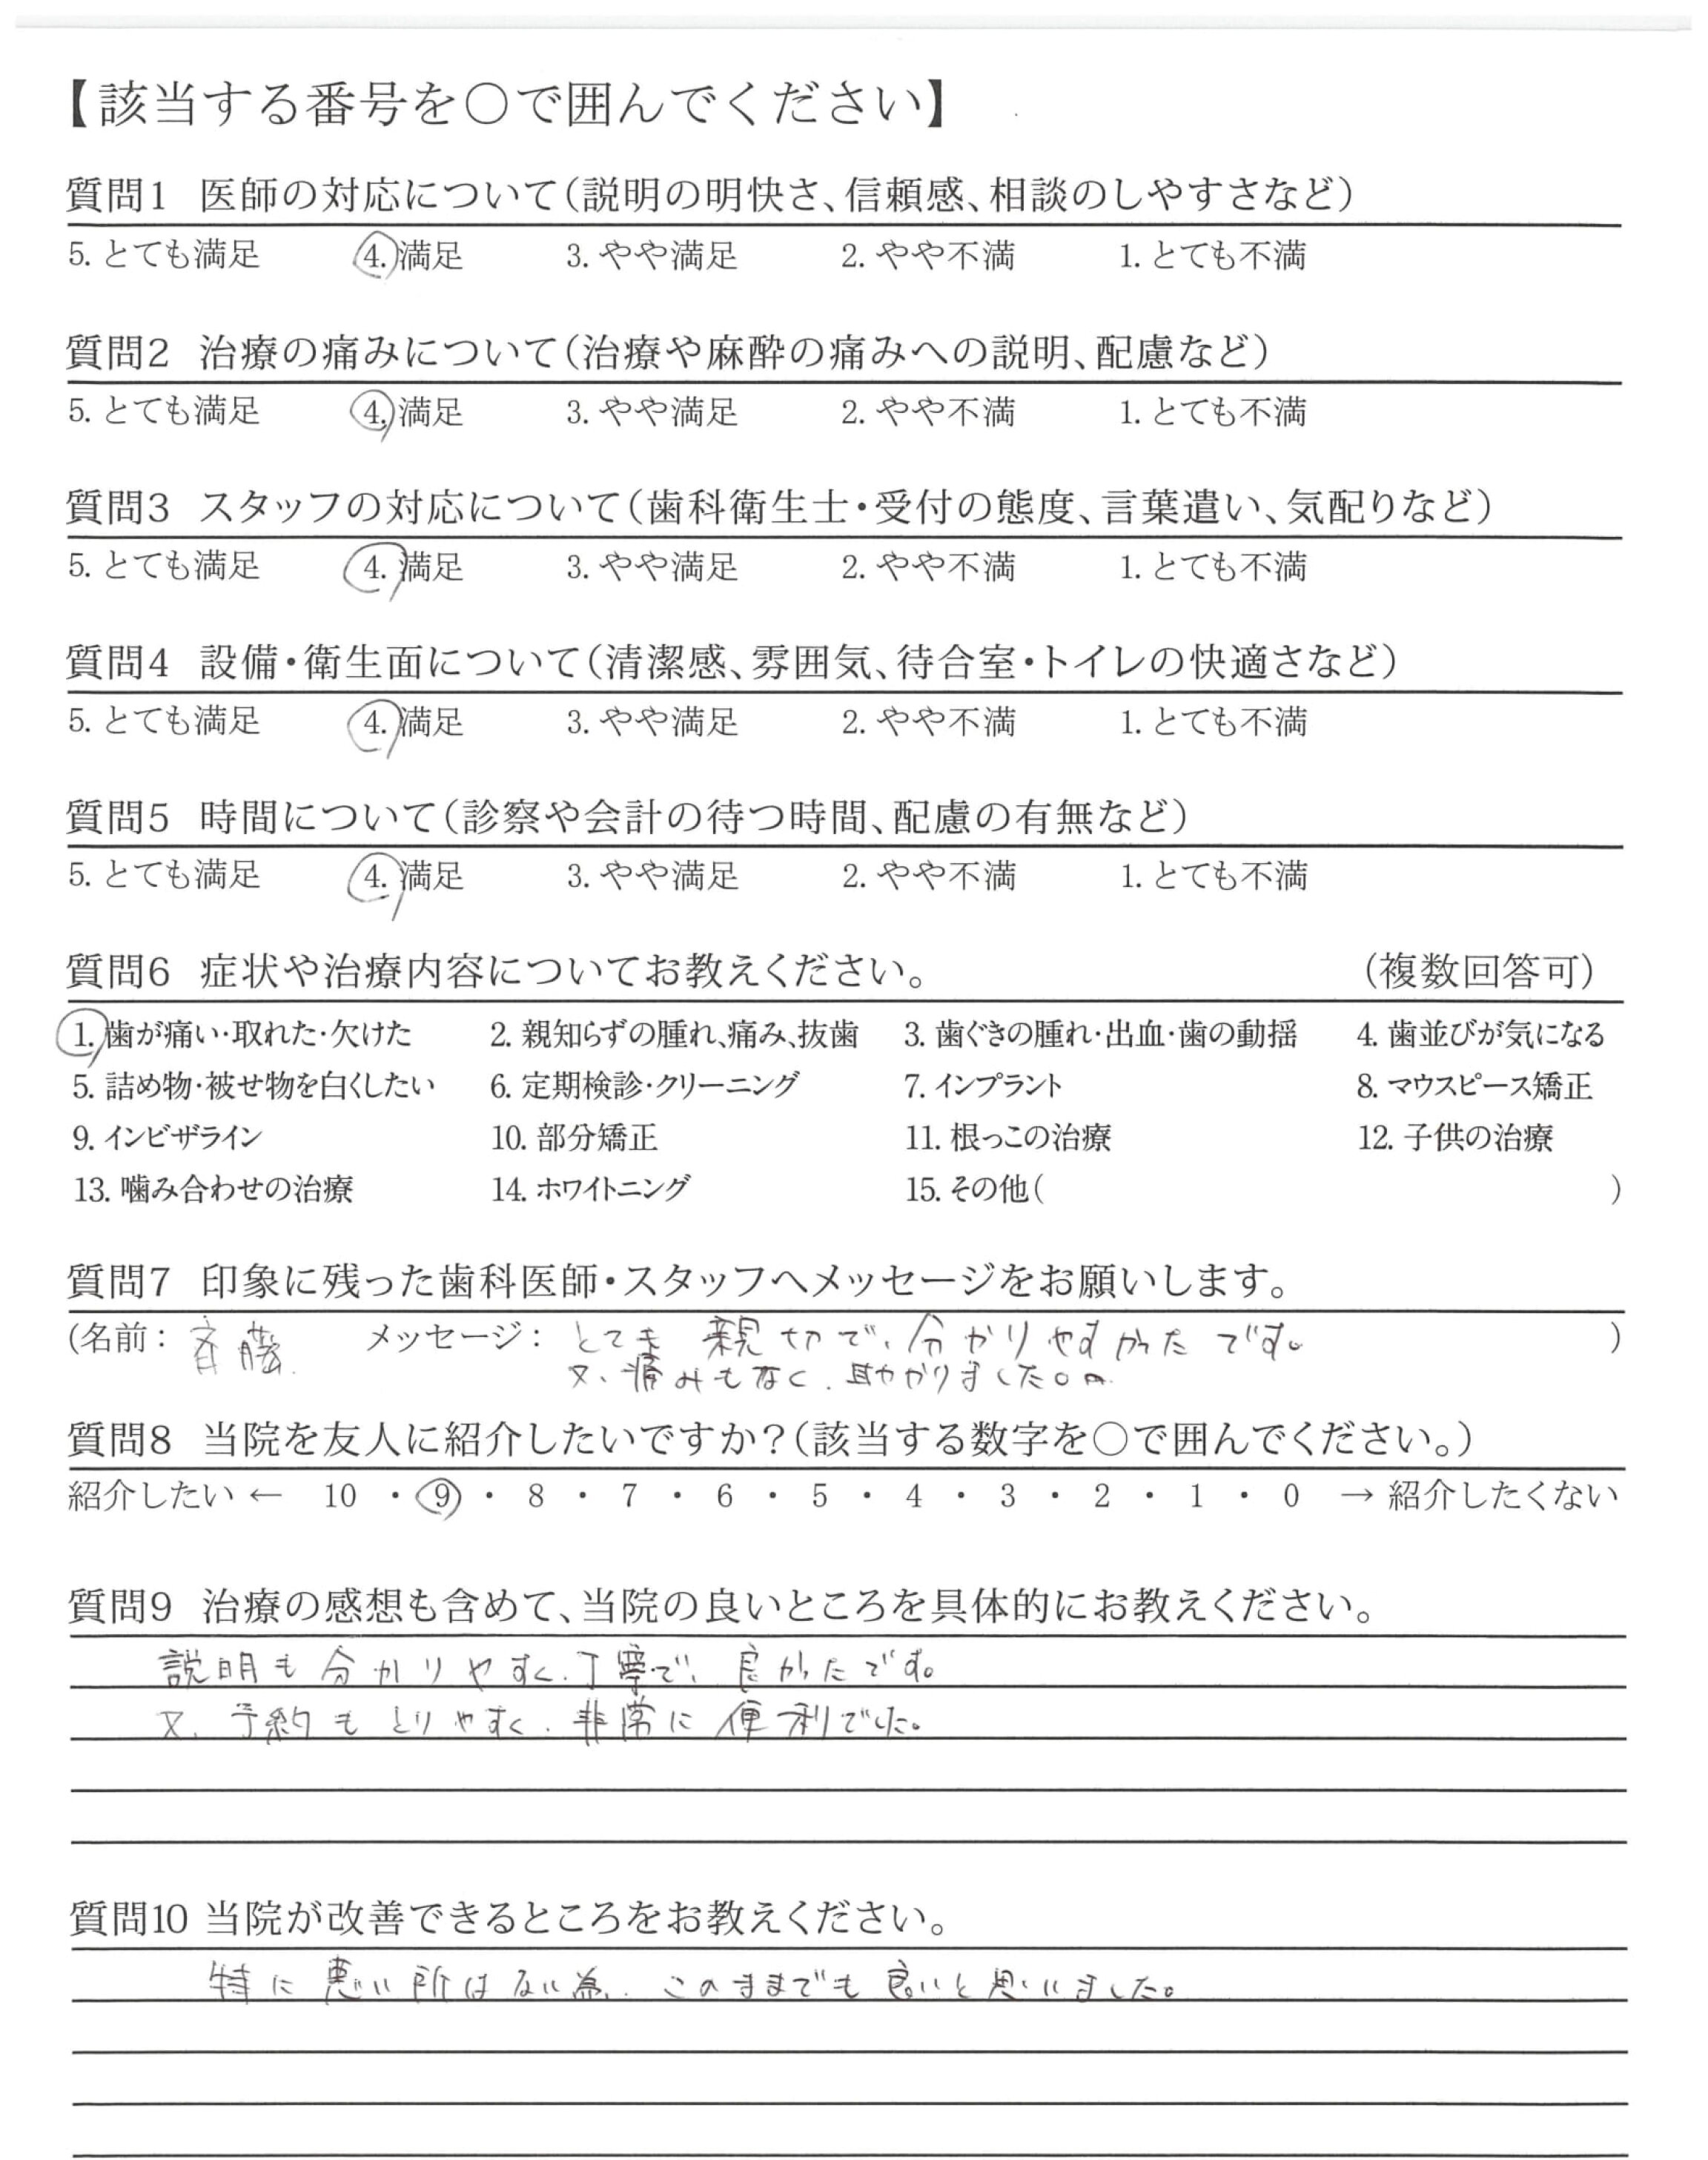 【該当する番号を○で囲んでください】
質問1 医師の対応について(説明の明快さ、信頼感、相談のしやすさなど)
5. とても満足 4. 満足 3. やや満足 2. やや不満 1. とても不満
質問2 治療の痛みについて(治療や麻酔の痛みへの説明、配慮など)
5. とても満足 4. 満足 3. やや満足 2. やや不満 1. とても不満
質問3 スタッフの対応について(歯科衛生士・受付の態度、言葉遣い、気配りなど)
5. とても満足 4. 満足 3. やや満足 2. やや不満 1. とても不満
質問4 設備・衛生面について(清潔感、雰囲気、待合室・トイレの快適さなど)
5. とても満足 4. 満足 3. やや満足 2. やや不満 1. とても不満
質問5 時間について(診察や会計の待つ時間、配慮の有無など)
5. とても満足 4. 満足 3. やや満足 2. やや不満 1. とても不満
質問6 症状や治療内容についてお教えください。 (複数回答可)
1. 歯が痛い・取れた・欠けた 2. 親知らずの腫れ、痛み、抜歯 3. 歯ぐきの腫れ・出血・歯の動揺 4. 歯並びが気になる
5. 詰め物・被せ物を白くしたい 6. 定期検診・クリーニング 7. インプラント 8. マウスピース矯正
9. インビザライン 10. 部分矯正 11. 根っこの治療 12. 子供の治療
13. 噛み合わせの治療 14. ホワイトニング 15. その他( )
質問7 印象に残った歯科医師・スタッフへメッセージをお願いします。
(名前: 斉藤 メッセージ: とても親切で、分かりやすかったです。 )
又、痛みもなく、助かりました。
質問8 当院を友人に紹介したいですか?(該当する数字を○で囲んでください。)
紹介したい ← 10 ・ 9 ・ 8 ・ 7 ・ 6 ・ 5 ・ 4 ・ 3 ・ 2 ・ 1 ・ 0 → 紹介したくない
質問9 治療の感想も含めて、当院の良いところを具体的にお教えください。
説明も分かりやすく、丁寧で、良かったです。
又、予約もとりやすく、非常に便利でした。
質問10 当院が改善できるところをお教えください。
特に悪い所はない為、このままでも良いと思いました。